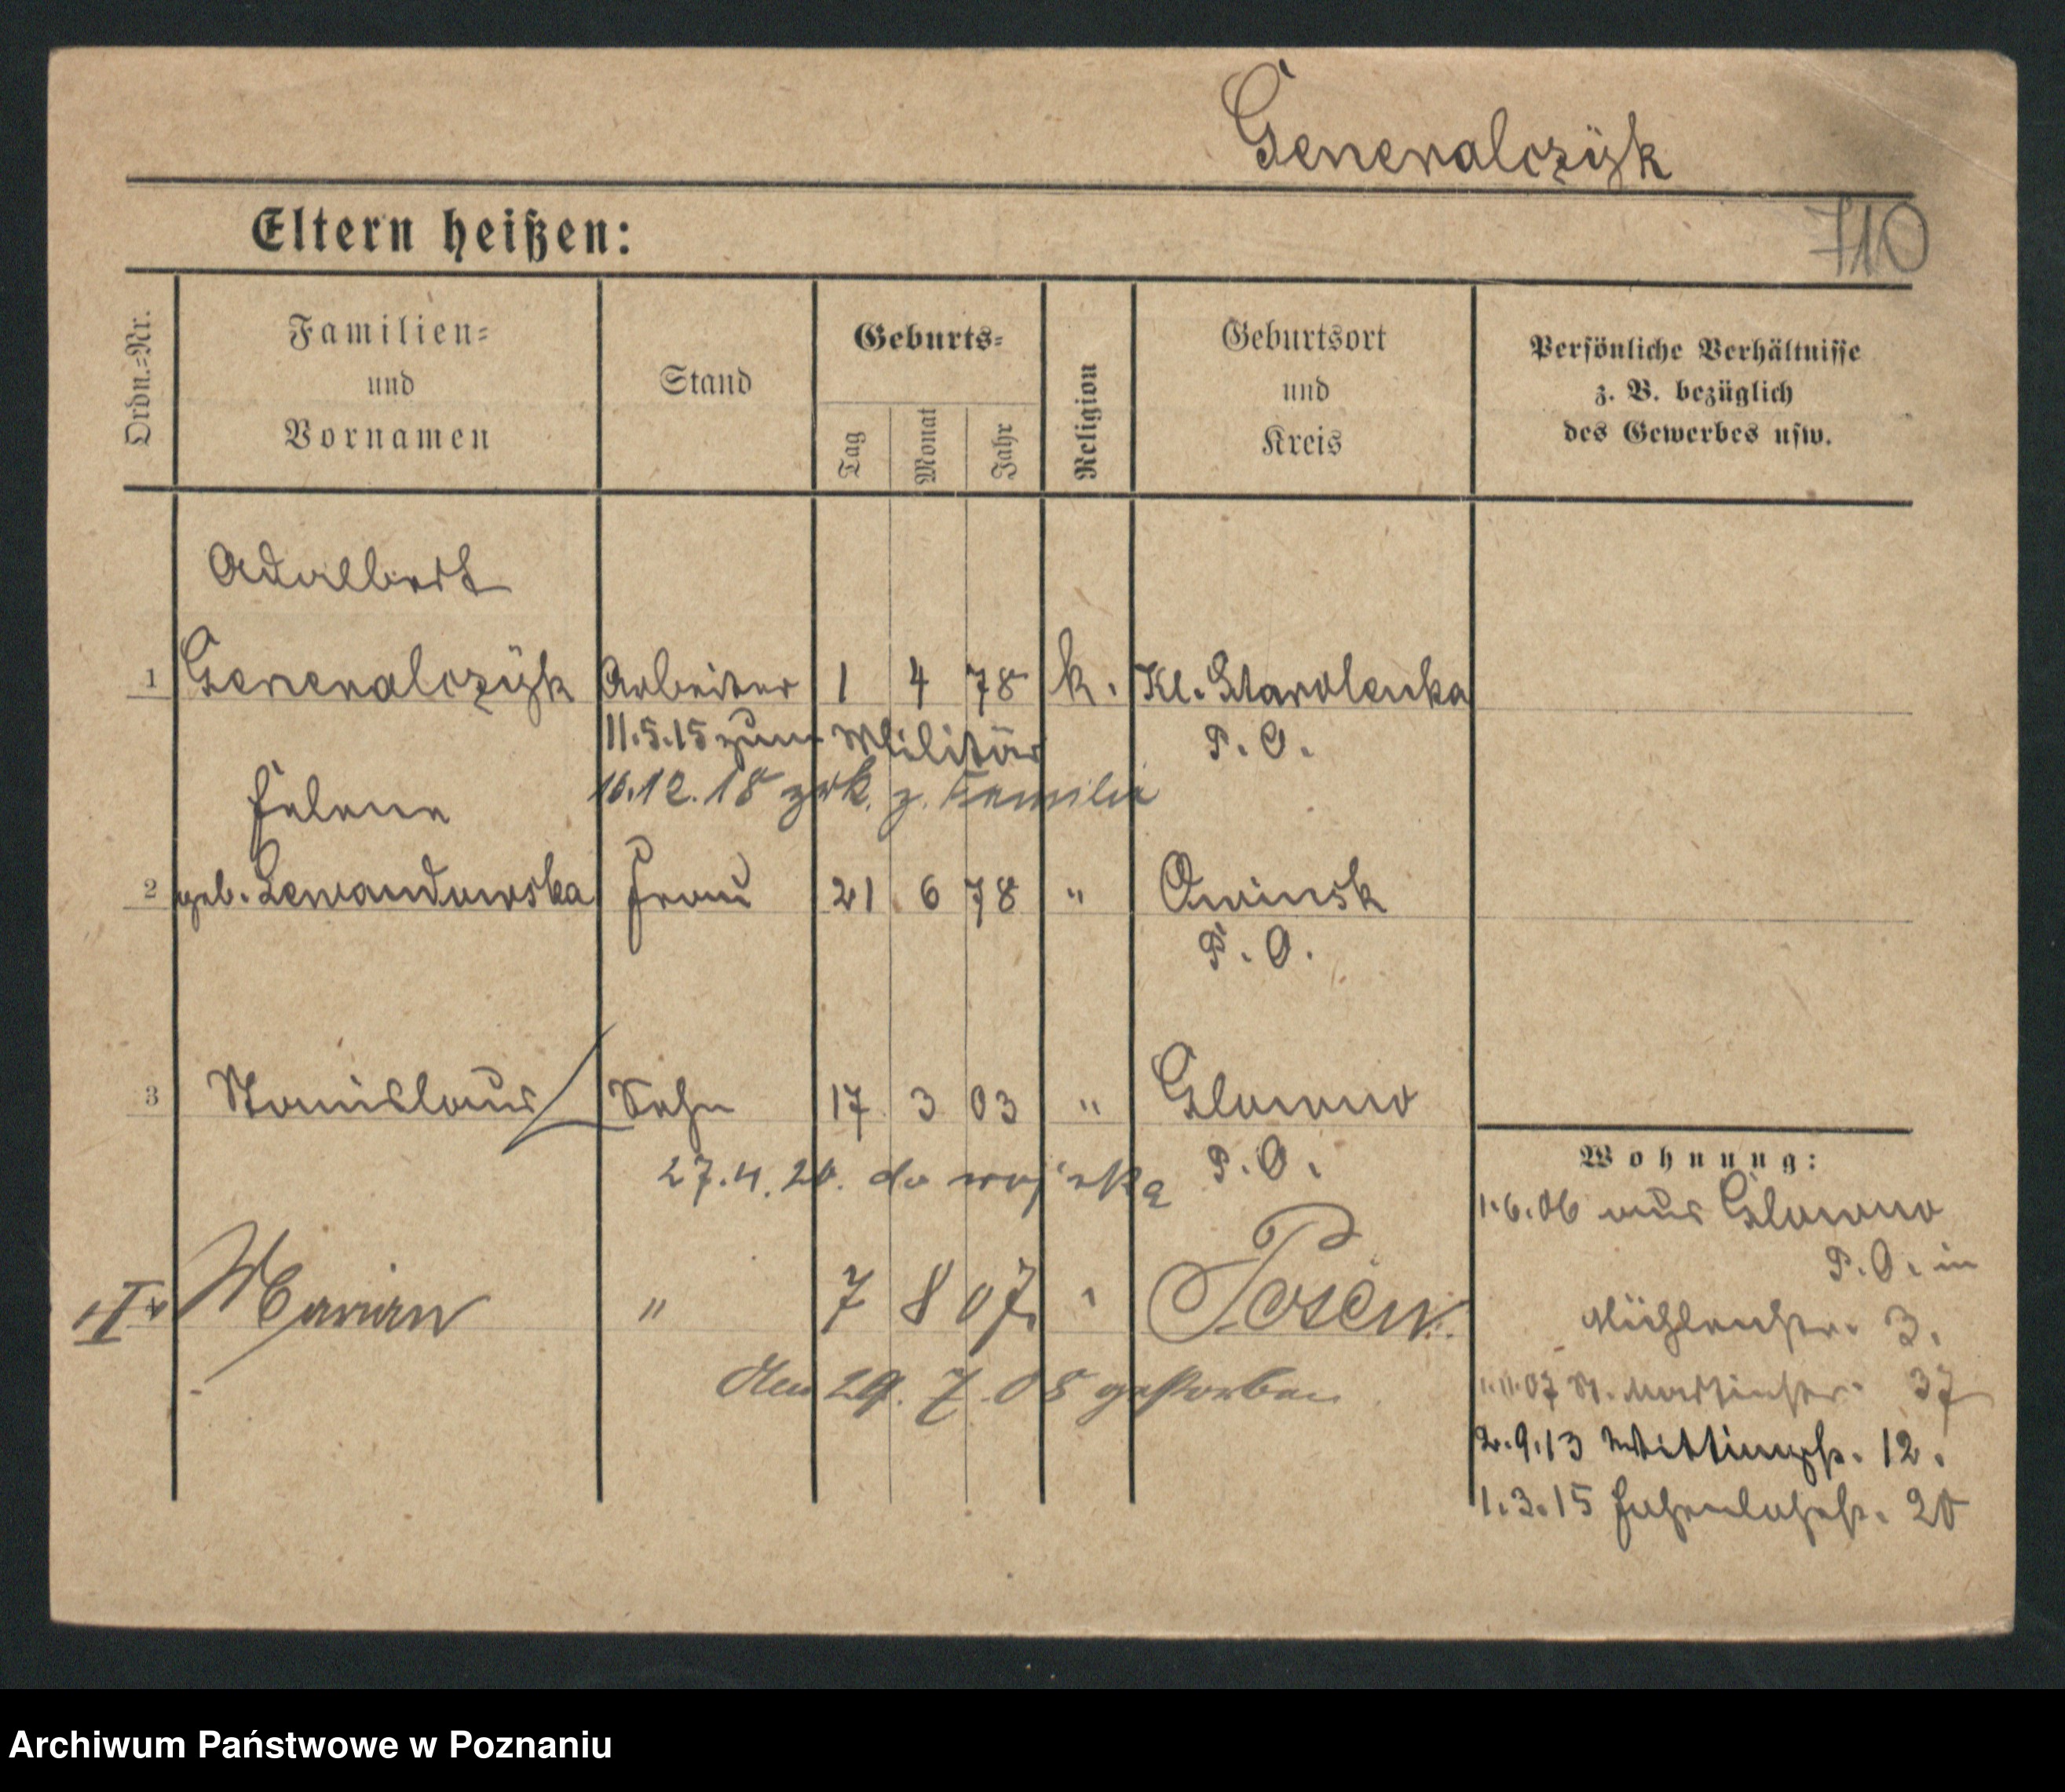 Generalczÿk
Eltern heißen:
710
Ordn.=Nr.
Familien=
und
Vornamen
Stand
Geburts=
Tag
Monat
Jahr
Religion
Geburtsort
und
Kreis
Persönliche Verhältnisse
z. B. bezüglich
des Gewerbes usw.
Adalbert
1 Generalczÿk Arbeiter 1 4 78 k. Kl. Starolenka
11.5.15 zum Militär P. O.
10.12.18 zrk. z. Familie
Helene
2 geb. Lewandowska Frau 21 6 78 " Owinsk
P. O.
3 Stanislaus Sohn 17 3 03 " Glowno
27.4.20. do wojska P. O.
Marian " 7 8 07. " Posen.
Den 29. 7. 08 gestorben
Wohnung:
1.6.06 aus Glowno
P. O. in
Mühlenstr. 3.
1.11.07 St. Martinstr. 37
2.9.13 Wittingstr. 12.
1.3.15 Hohenlohestr. 20
Archiwum Państwowe w Poznaniu